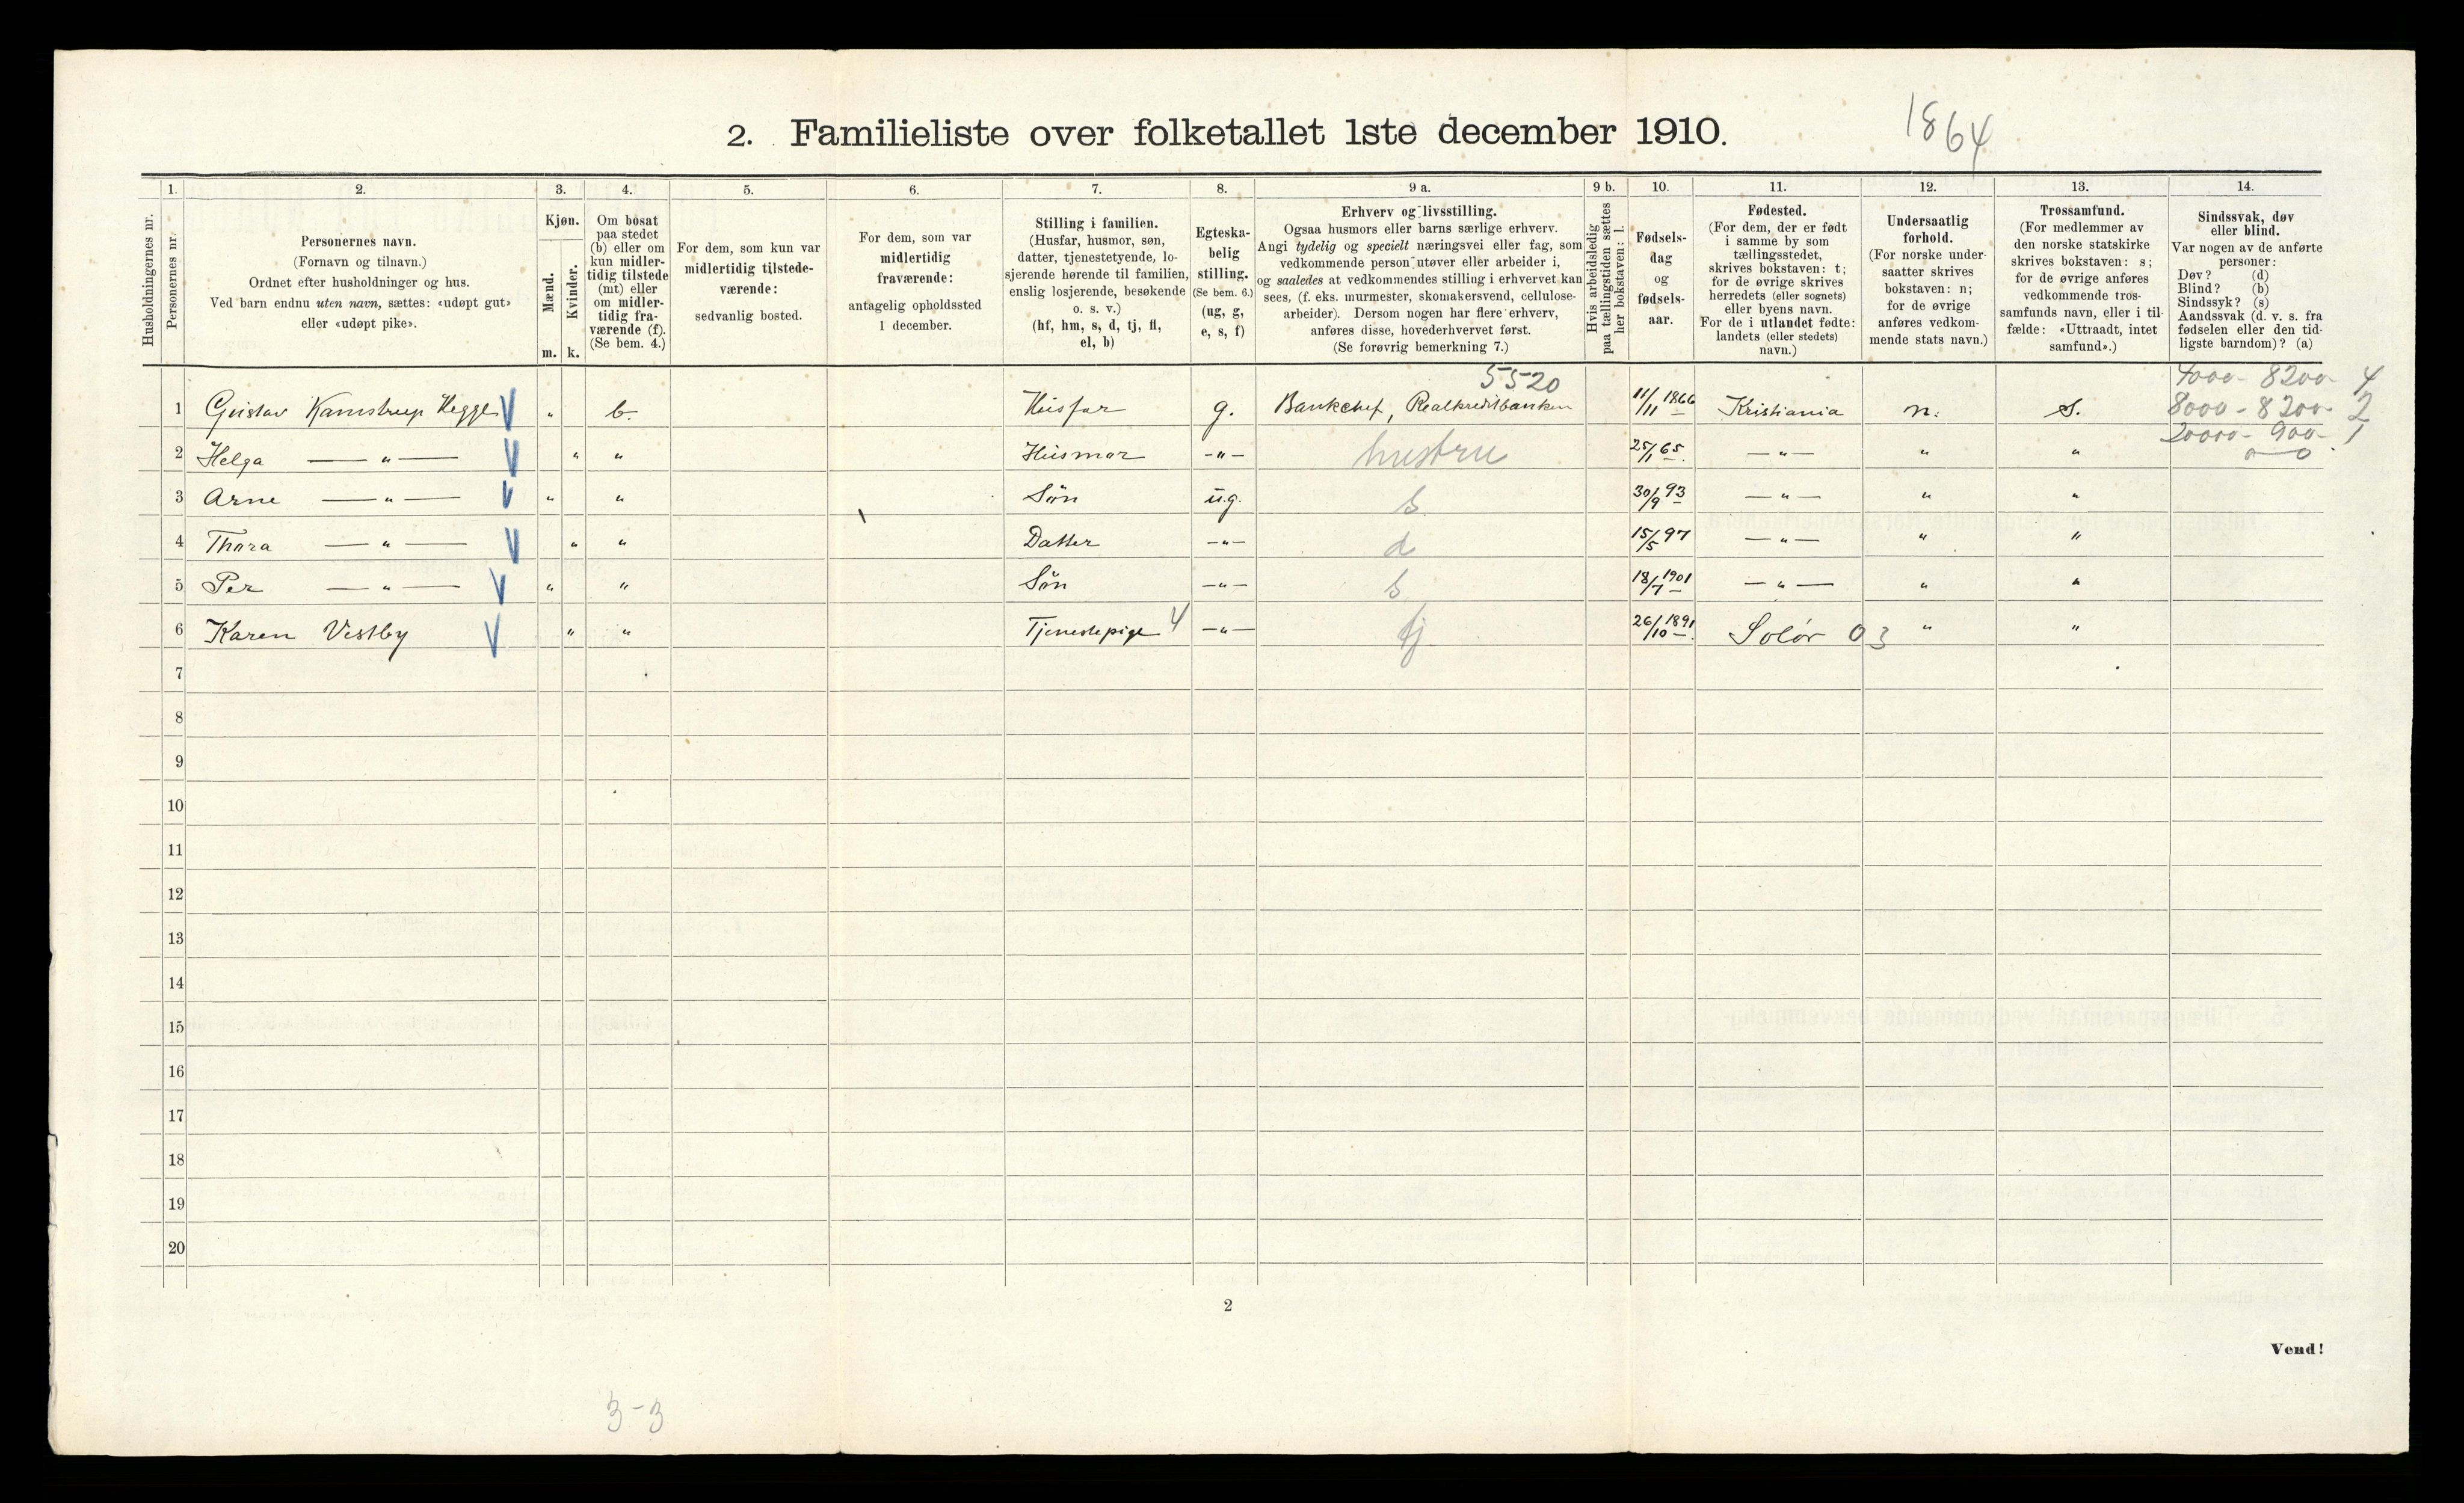 1864
2. Familieliste over folketallet 1ste december 1910.
1. 2. 3. 4. 5. 6. 7. 8. 9 a. 9 b. 10. 11. 12. 13. 14.
Husholdningernes nr.
Personernes nr.
Personernes navn.
(Fornavn og tilnavn.)
Ordnet efter husholdninger og hus.
Ved barn endnu uten navn, sættes: «udøpt gut»
eller «udøpt pike».
Kjøn.
Mænd.
Kvinder.
m. k.
Om bosat
paa stedet
(b) eller om
kun midler-
tidig tilstede
(mt) eller
om midler-
tidig fra-
værende (f).
(Se bem. 4.)
For dem, som kun var
midlertidig tilstede-
værende:
sedvanlig bosted.
For dem, som var
midlertidig
fraværende:
antagelig opholdssted
1 december.
Stilling i familien.
(Husfar, husmor, søn,
datter, tjenestetyende, lo-
sjerende hørende til familien,
enslig losjerende, besøkende
o. s. v.)
(hf, hm, s, d, tj, fl,
el, b)
Egteska-
belig
stilling.
(Se bem. 6.)
(ug, g,
e, s, f)
Erhverv og livsstilling.
Ogsaa husmors eller barns særlige erhverv.
Angi tydelig og specielt næringsvei eller fag, som
vedkommende person utøver eller arbeider i,
og saaledes at vedkommendes stilling i erhvervet kan
sees, (f. eks. murmester, skomakersvend, cellulose-
arbeider). Dersom nogen har flere erhverv,
anføres disse, hovederhvervet først.
(Se forøvrig bemerkning 7.)
Hvis arbeidsledig
paa tællingstiden sættes
her bokstaven: l.
Fødsels-
dag
og
fødsels-
aar.
Fødested.
(For dem, der er født
i samme by som
tællingsstedet,
skrives bokstaven: t;
for de øvrige skrives
herredets (eller sognets)
eller byens navn.
For de i utlandet fødte:
landets (eller stedets)
navn.)
Undersaatlig
forhold.
(For norske under-
saatter skrives
bokstaven: n;
for de øvrige
anføres vedkom-
mende stats navn.)
Trossamfund.
(For medlemmer av
den norske statskirke
skrives bokstaven: s;
for de øvrige anføres
vedkommende tros-
samfunds navn, eller i til-
fælde: «Uttraadt, intet
samfund».)
Sindssvak, døv
eller blind.
Var nogen av de anførte
personer:
Døv? (d)
Blind? (b)
Sindssyk? (s)
Aandssvak (d. v. s. fra
fødselen eller den tid-
ligste barndom)? (a)
5520 4000- 8200- 4
1 Gustav Kamstrup Hegge V " b. Husfar g. Bankchef, Realkreditbanken 11/11 1866 Kristiania n. S. 8000 - 8200- 2
20000- 900- 1
2 Helga — " — V " " Husmor -"- hustru 25/1 65. — " — " " 0 — 0
3 Arne — " — V " " Søn ug. s 30/9 93 — " — " "
4 Thora — " — V " " Datter -"- d 15/5 97 — " — " "
5 Per — " — V " " Søn -"- s 18/7 1901 — " — " "
6 Karen Vestby V " " Tjenestepige 4 -"- tj 26/10 1891 Solør 03 " "
7
8
9
10
11
12
13
14
15
16
17
18
19
20
2
Vend!
3-3